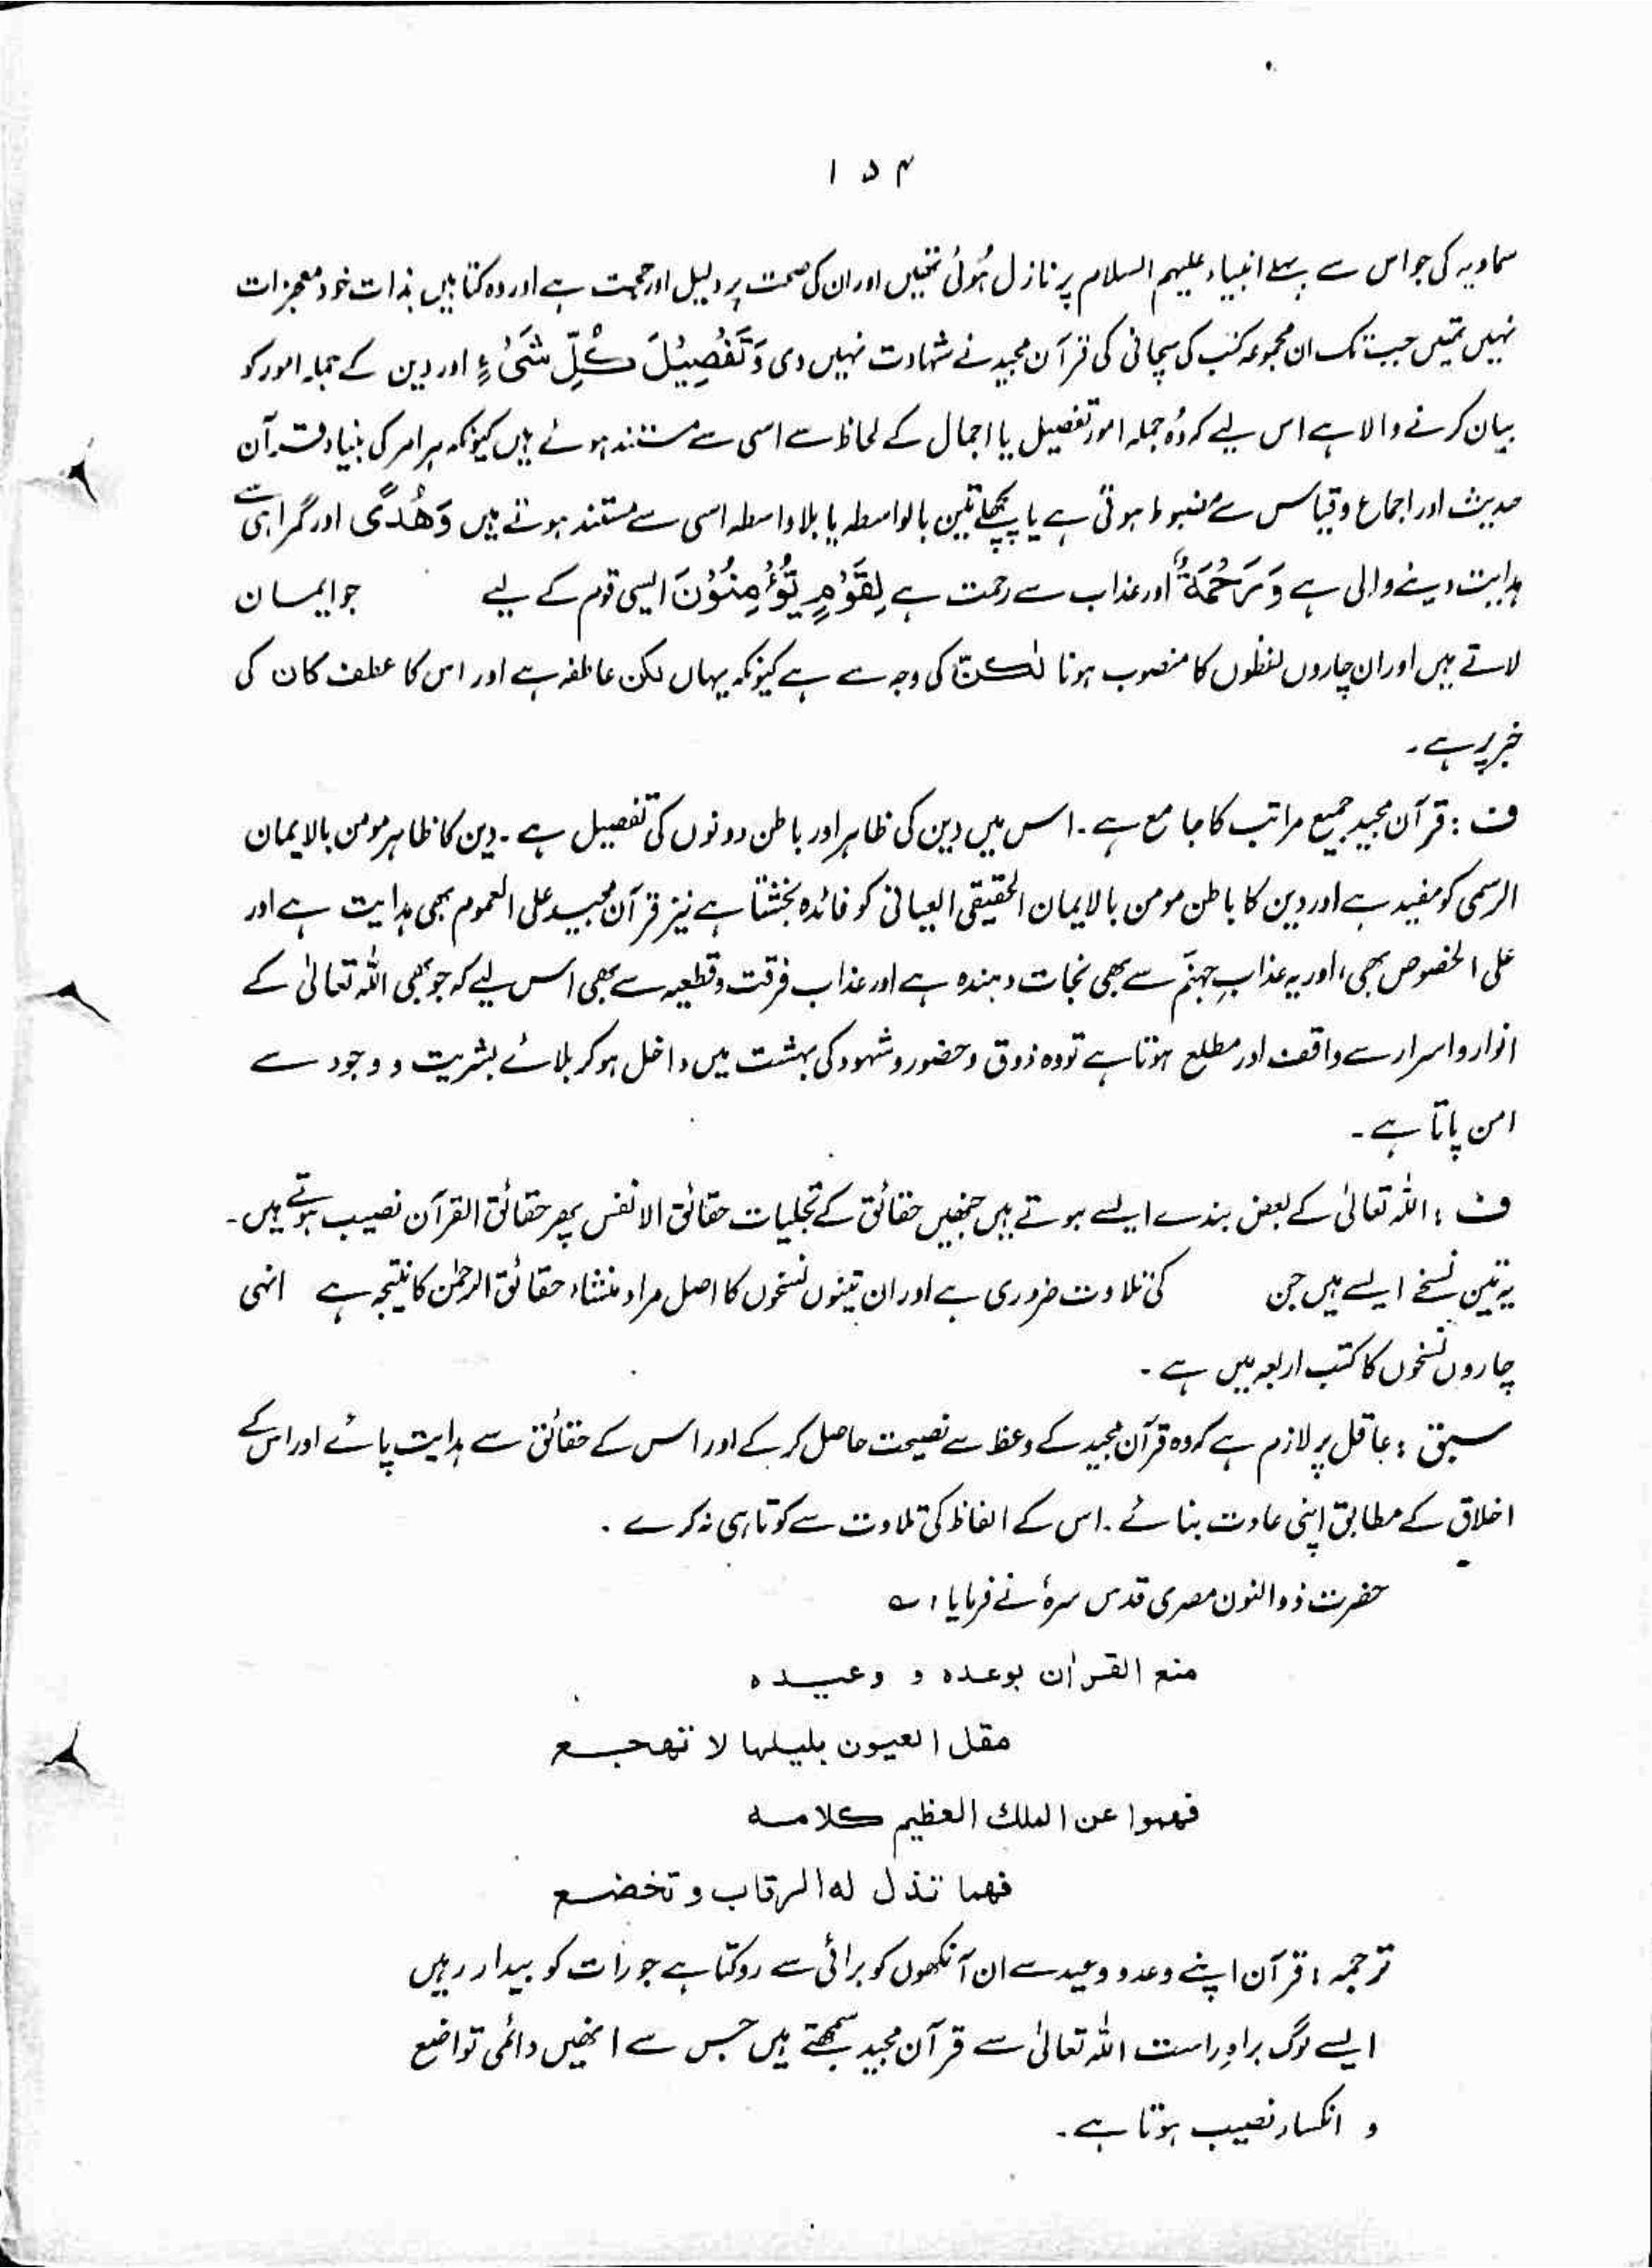 ۱۵۴
سماویہ کی جو اس سے پہلے انبیاء علیہم السلام پر نازل ہُوئی تھیں اور ان کی صحت پر دلیل اور حجت ہے اور وہ کتابیں بذات خود معجزات
نہیں تھیں جب تک ان مجموعہ کتب کی سچائی کی قرآن مجید نے شہادت نہیں دی وَتَفْصِیْلَ کُلِّ شَیْءٍ اور دین کے جملہ امور کو
بیان کرنے والا ہے اس لیے کہ وُہ جملہ امور تفصیل یا اجمال کے لحاظ سے اسی سے مستند ہوئے ہیں کیونکہ ہر امر کی بنیاد قرآن
حدیث اور اجماع و قیاس سے مضبوط ہوتی ہے یا پچھلے تین بالواسطہ یا بلاواسطہ اسی سے مستند ہوتے ہیں وَهُدًی اور گمراہی سے
ہدایت دینے والی ہے وَّرَحْمَةً اور عذاب سے رحمت ہے لِقَوْمٍ یُّؤْمِنُوْنَ ایسی قوم کے لیے جو ایمان
لاتے ہیں اور ان چاروں لفظوں کا منصوب ہونا لٰکنّ کی وجہ سے ہے کیونکہ یہاں لکن عاطفہ ہے اور اس کا عطف کان کی
خبر پر ہے۔
ف : قرآن مجید جمیع مراتب کا جامع ہے۔ اس میں دین کی ظاہر اور باطن دونوں کی تفصیل ہے۔ دین کا ظاہر مومن بالایمان
الرسمی کو مفید ہے اور دین کا باطن مومن بالایمان الحقیقی العیانی کو فائدہ بخشتا ہے نیز قرآن مجید علی العموم بھی ہدایت ہے اور
علی الخصوص بھی، اور یہ عذابِ جہنّم سے بھی نجات دہندہ ہے اور عذاب فرقت و قطیعہ سے بھی اس لیے کہ جو بھی اللہ تعالیٰ کے
انوار و اسرار سے واقف اور مطلع ہوتا ہے تو وہ ذوق و حضور و شہود کی بہشت میں داخل ہو کر بلائے بشریت و وجود سے
امن پاتا ہے۔
ف : اللہ تعالیٰ کے بعض بندے ایسے ہوتے ہیں جنھیں حقائق کے تجلیات حقائق الانفس پھر حقائق القرآن نصیب ہوتے ہیں۔
یہ تین نسخے ایسے ہیں جن کی تلاوت ضروری ہے اور ان تینوں نسخوں کا اصل مراد منشاء حقائق الرحمٰن کا نتیجہ ہے انہی
چاروں نسخوں کا کتب اربعہ میں ہے۔
سبق : عاقل پر لازم ہے کہ وہ قرآن مجید کے وعظ سے نصیحت حاصل کر کے اور اس کے حقائق سے ہدایت پائے اور اس کے
اخلاق کے مطابق اپنی عادت بنائے۔ اس کے الفاظ کی تلاوت سے کوتاہی نہ کرے۔
حضرت ذوالنون مصری قدس سرہٗ نے فرمایا : ؎
منع القراٰن بوعدہ و وعیدہ
مقل العیون بلیلہا لا تهجع
فهموا عن الملك العظیم کلامه
فهما تذل له الرقاب و تخضع
ترجمہ : قرآن اپنے وعد و وعید سے ان آنکھوں کو برائی سے روکتا ہے جو رات کو بیدار رہیں
ایسے لوگ براہِ راست اللہ تعالیٰ سے قرآن مجید سمجھتے ہیں جس سے انھیں دائمی تواضع
و انکسار نصیب ہوتا ہے۔